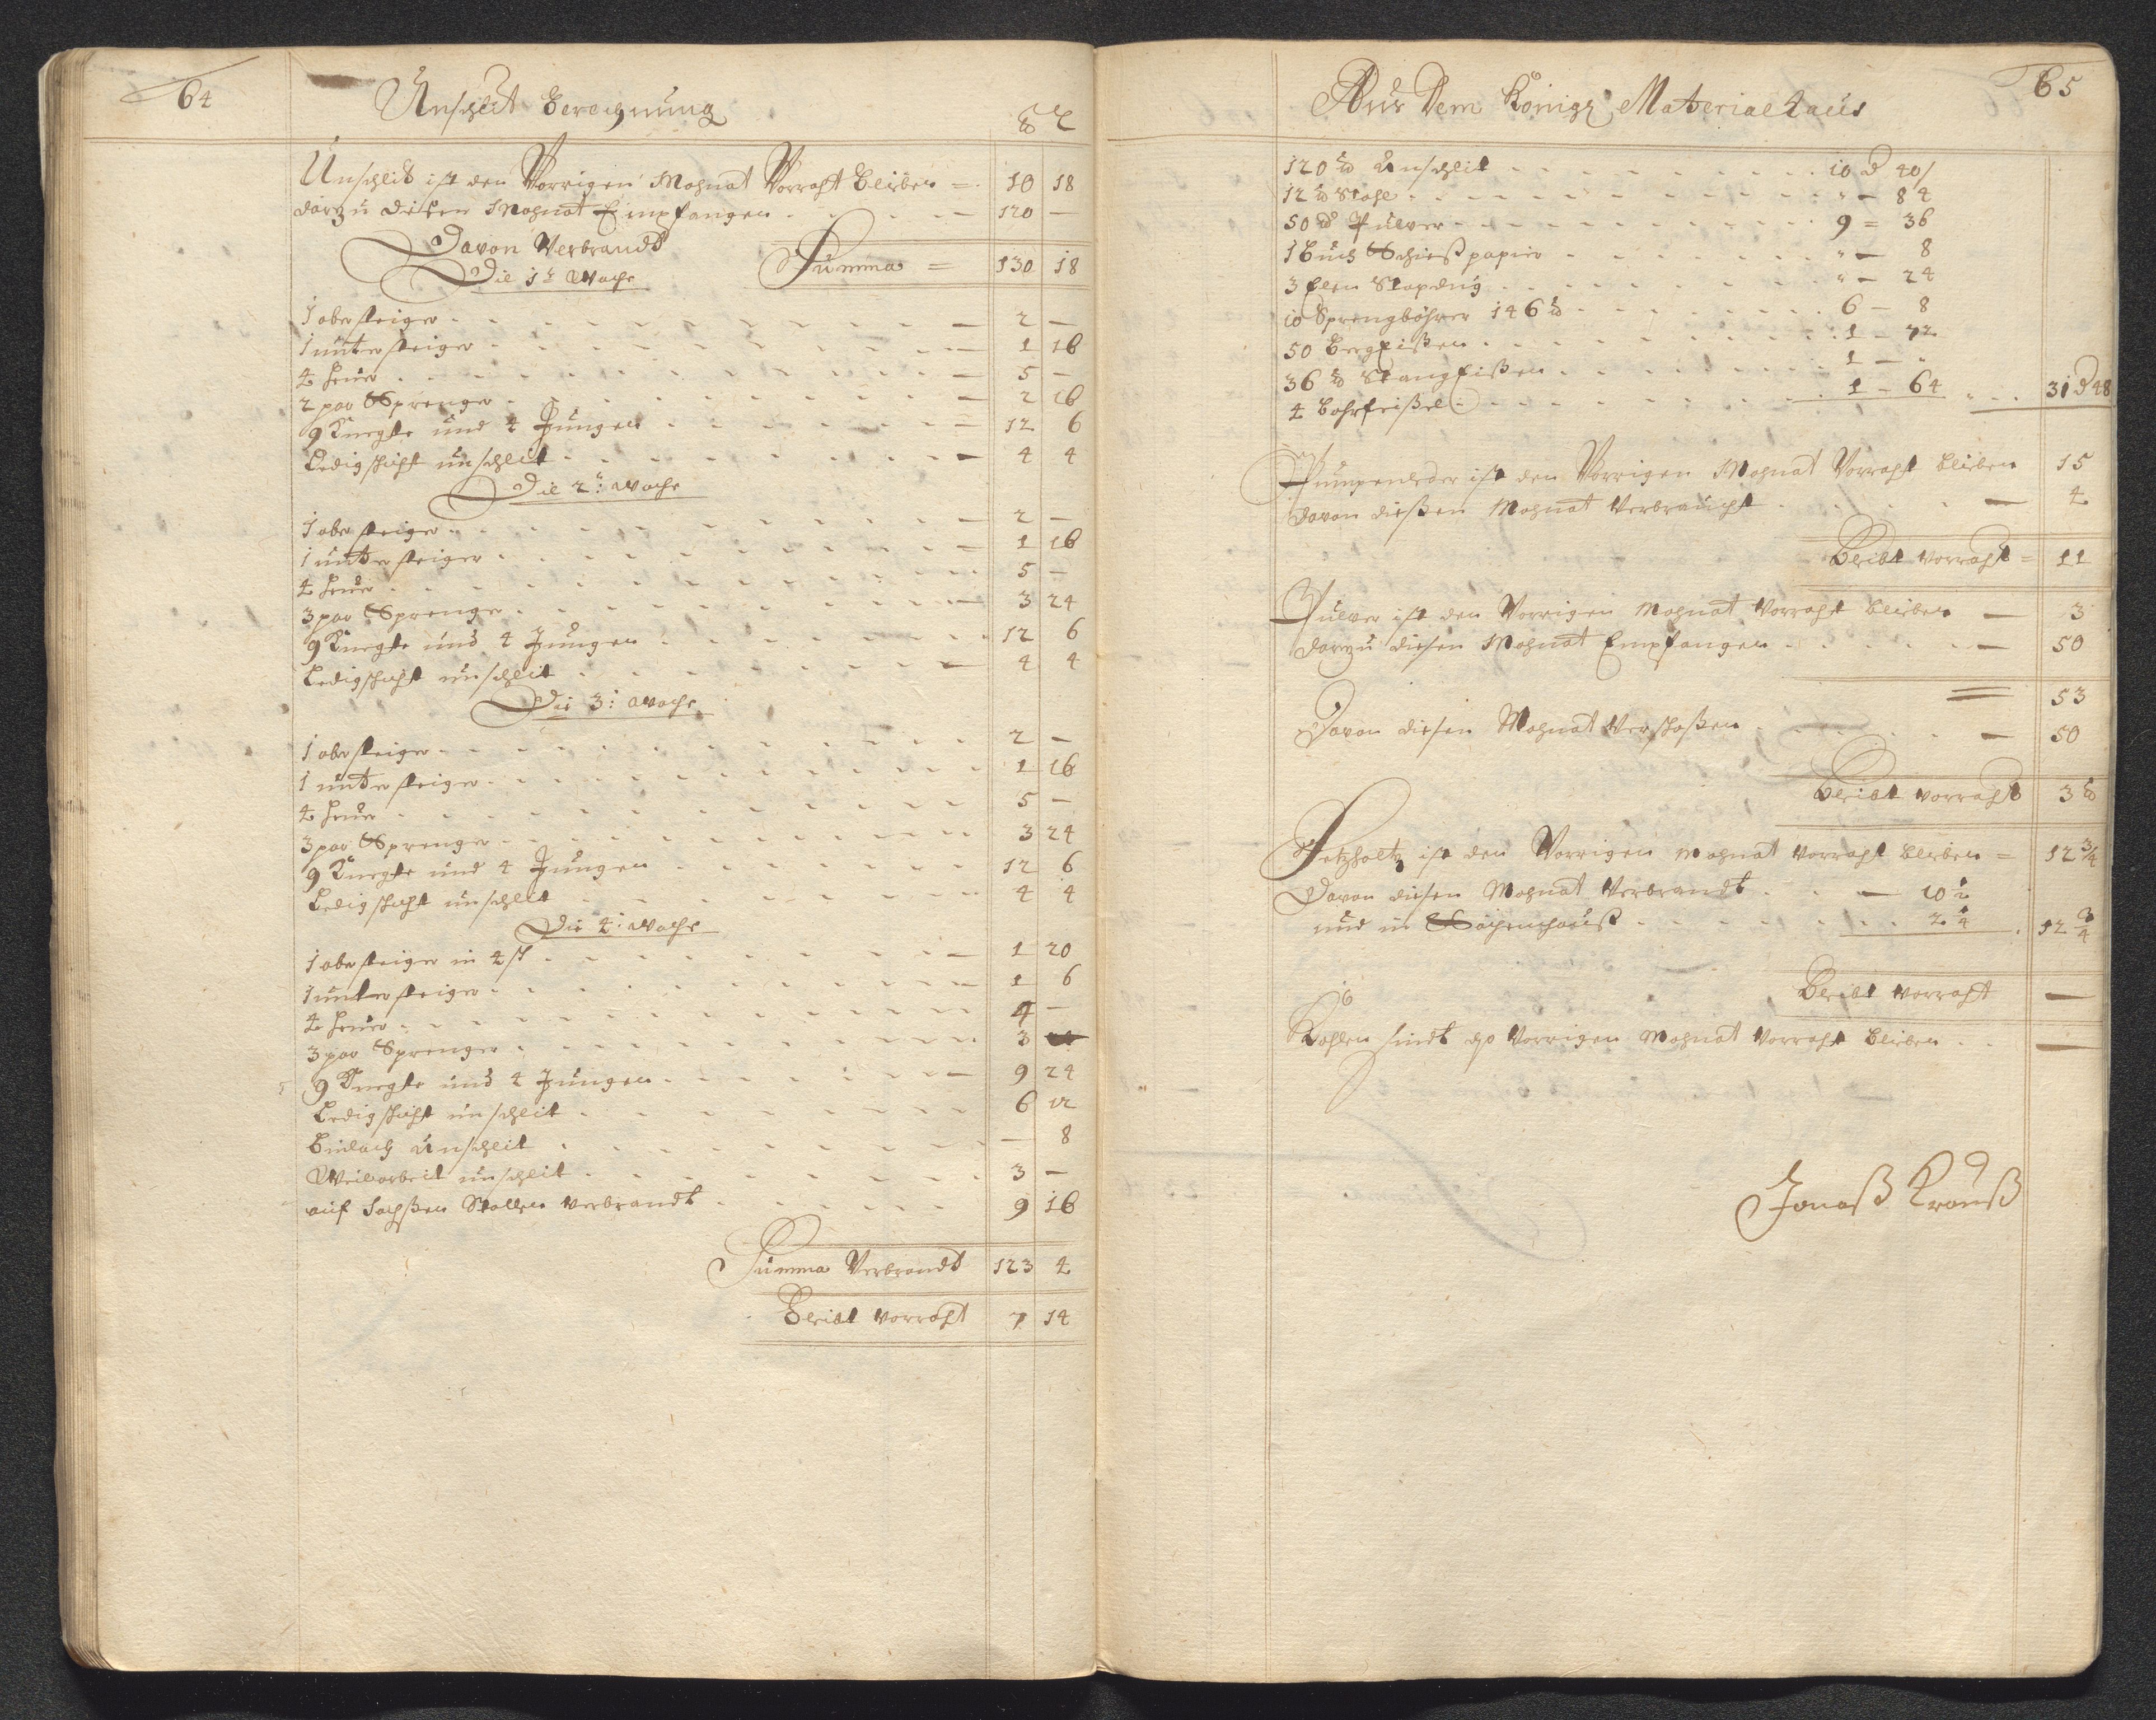 64
Unschlit Berechnung
℔ L
Unschlit ist den Vorrigen Mohnat Vorraht Blieben = 10 18
darzu diesen Mohnat Empfangen - 120 —
Davon Verbrandt Summa = 130 18
Die 1te Woche
1 obersteiger - 2 —
1 untersteiger - 1 16
4 heuer - 5 —
2 par Sprenger - 2 16
9 Knechte und 4 Jungen - 12 6
Ledigschicht unschleit - 4 4
Die 2: Woche
1 obersteiger - 2 —
1 untersteiger - 1 16
4 heuer - 5 —
3 par Sprenger - 3 24
9 Knechte und 4 Jungen - 12 6
Ledigschicht unschleit - 4 4
Die 3: Woche
1 obersteiger - 2 —
1 untersteiger - 1 16
4 heuer - 5 —
3 par Sprenger - 3 24
9 Knechte und 4 Jungen - 12 6
Ledigschicht unschleit - 4 4
Die 4: Woche
1 obersteiger in 4 - 1 20
1 untersteiger - 1 6
4 heuer - 4 —
3 par Sprenger - 3
9 Knechte und 4 Jungen - 9 24
Ledigschicht unschleit - 6 12
Unschleit - — 8
Weilarbeit unschleit - 3 —
auf Sachßen Stollen verbrandt - 9 16
Summa Verbrandt 123 4
Bleibt vorraht 7 14
65
Aus Dem Königl Material Haus
120 ℔ Unschlit - 10 d 40
12 ℔ Stahl - " — 84
50 ℔ Pulver - 9 = 36
1 Buch Schießpapier - " — 8
3 Elen - " — 24
10 Sprengböhrer 146 ℔ - 6 — 8
50 Bergeißen - 1 — 72
36 ℔ Stangeißen - 1 — "
4 Bohrfeißel - 1 — 64 31 d 48
Pumpenleder ist den Vorrigen Mohnat Vorraht blieben 15
davon dießen Mohnat Verbraucht - 4
Bleibt vorraht = 11
Pulver ist den Vorrigen Mohnat Vorraht blieben — 3
darzu diesen Mohnat Empfangen - 50
= 53
Davon diesen Mohnat Verschoßen - 50
Bleibt vorraht 3 ℔
Setzholtz ist den Vorrigen Mohnat vorraht blieben = 12 3/4
Davon diesen Mohnat Verbrandt - 10 1/2
und in - 2 1/4 12 3/4
Bleibt vorraht —
Kohlen sindt Vorrigen Mohnat Vorraht blieben - —
Jonaß Krauß